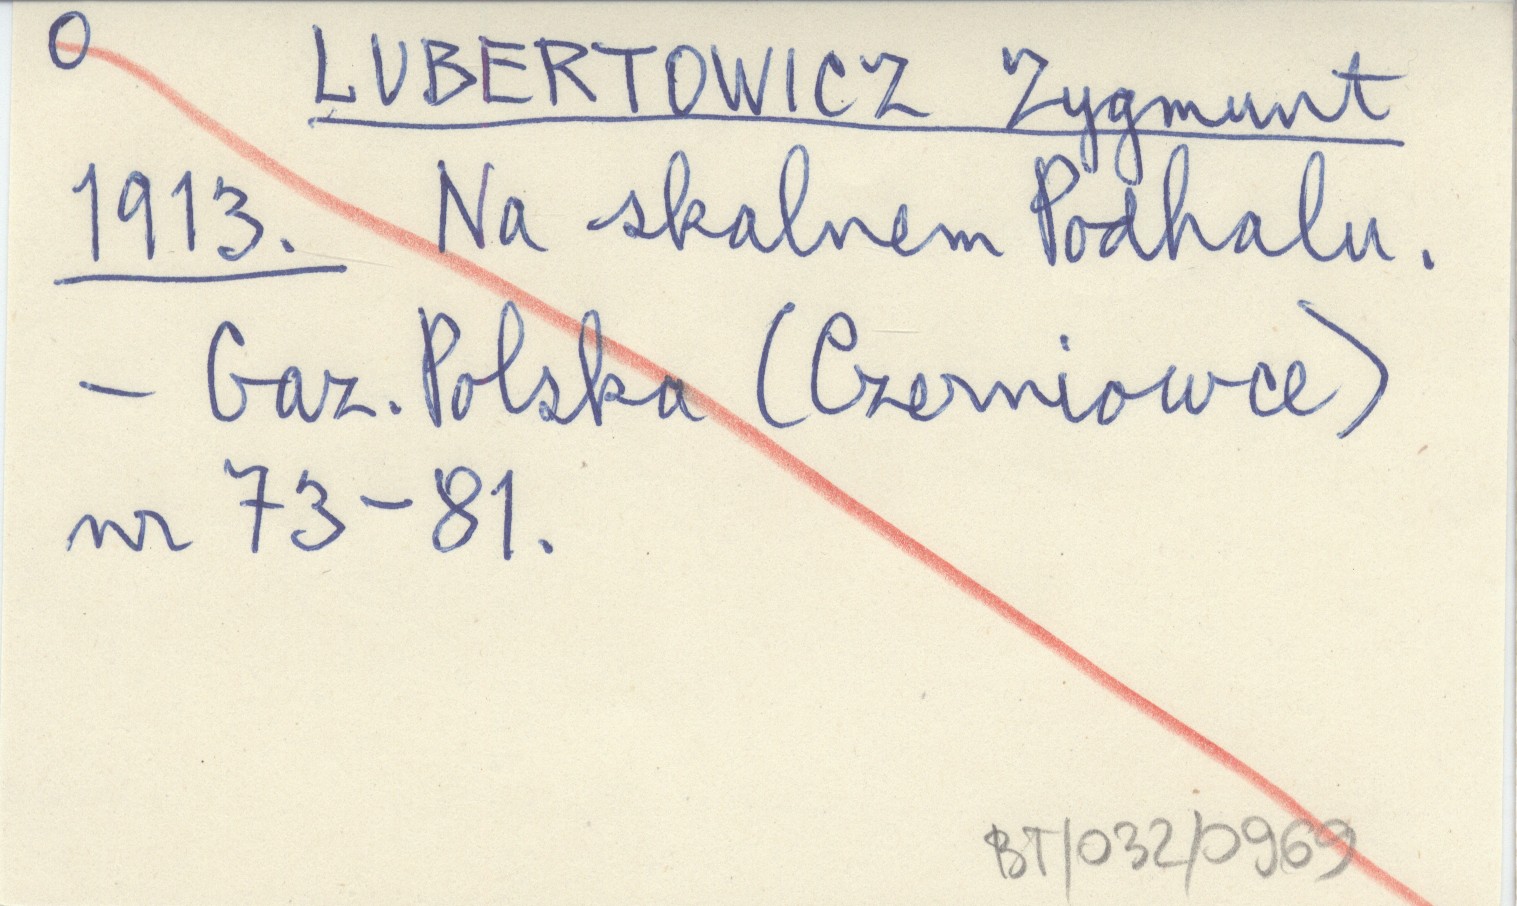 O LUBERTOWICZ Zygmunt
1913. Na skalnem Podhalu.
- Gaz. Polska (Czerniowce)
nr 73-81.
BT/032/0969